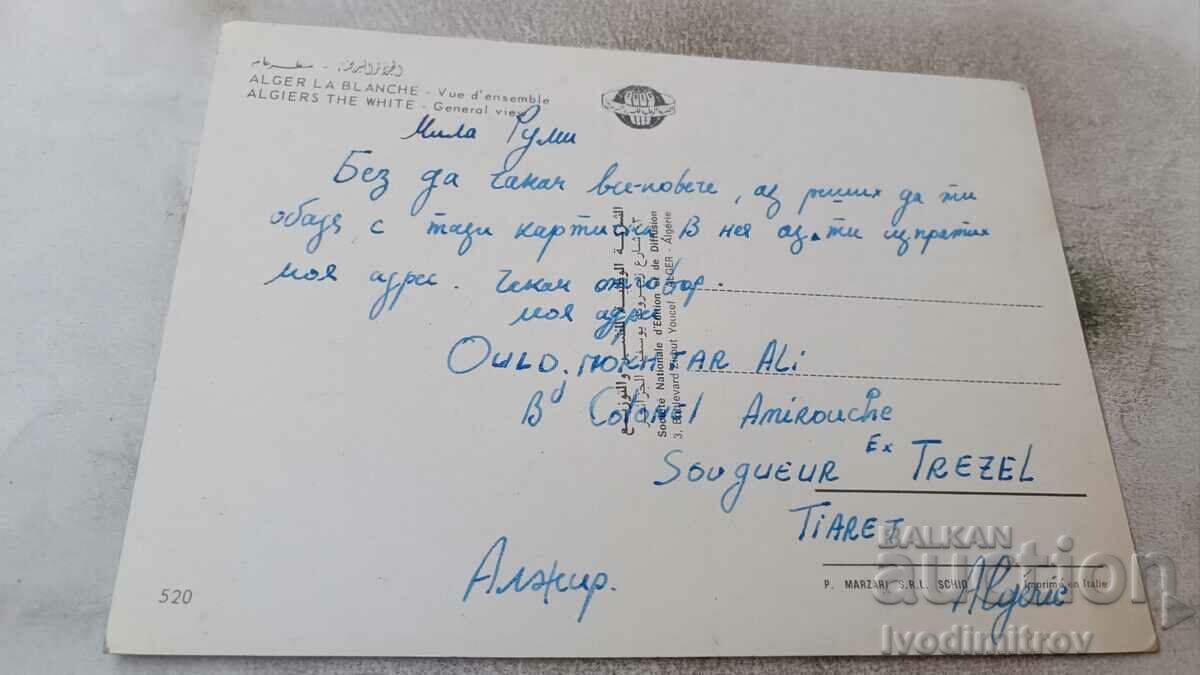 ALGER LA BLANCHE - Vue d'ensemble
ALGIERS THE WHITE - General view
Мила Руми
Без да чакам все-повече, аз реших да ти
обадя с тази картичка В нея аз ти изпратих
моя адрес. Чакам отговор.
моя адрес
OULD. MOKHTAR ALi
Bd Colonel Amirouche
SOUGUEUR Ex TREZEL
TiARET
Алжир.
Algérie
الشركة الوطنية للنشر والتوزيع
Société Nationale d'Edition et de Diffusion
3, Boulevard Zirout Youcef ALGER - Algérie
520
P. MARZARI S.R.L. SCHIO
Imprimé en Italie
BALKAN
auction
Ivodimitrov